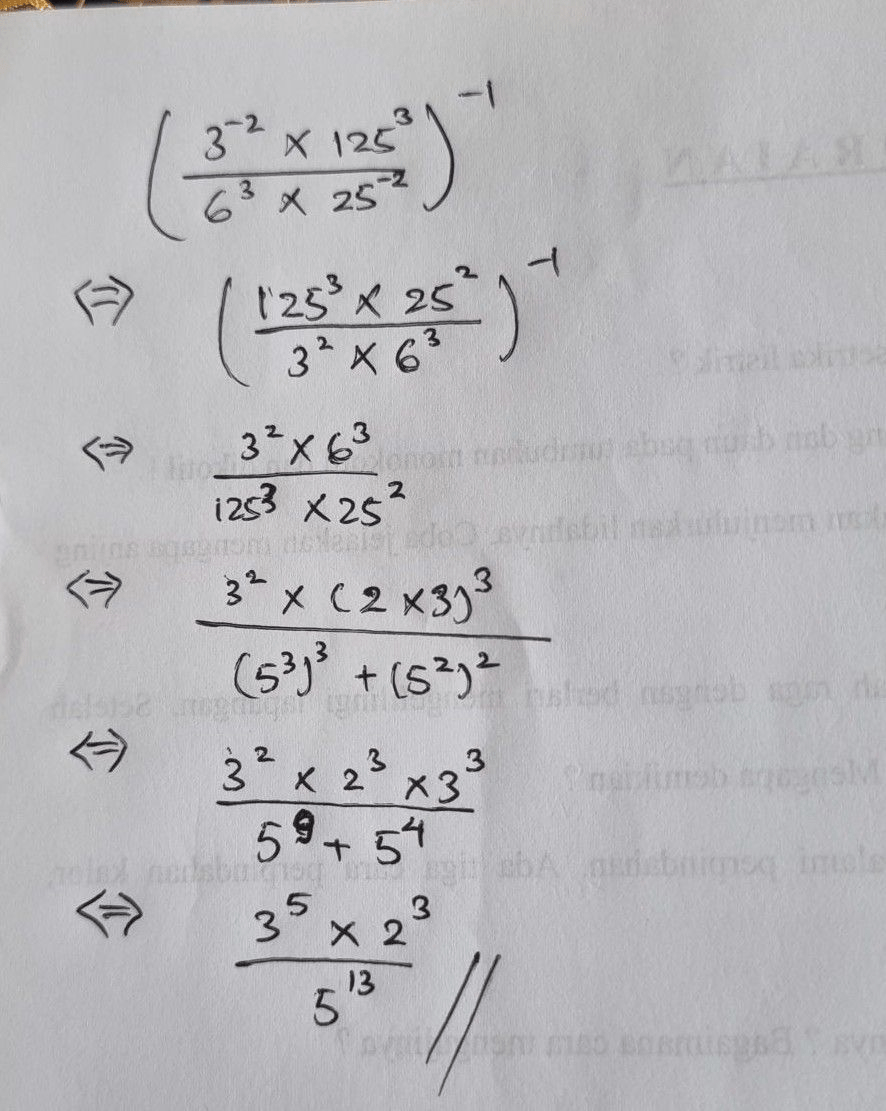 (3⁻² × 125³ / 6³ × 25⁻²)⁻¹
⇔ (125³ × 25² / 3² × 6³)⁻¹
⇔ 3² × 6³ / 125³ × 25²
⇔ 3² × (2 × 3)³ / (5³)³ + (5²)²
⇔ 3² × 2³ × 3³ / 5⁹ + 5⁴
⇔ 3⁵ × 2³ / 5¹³ //